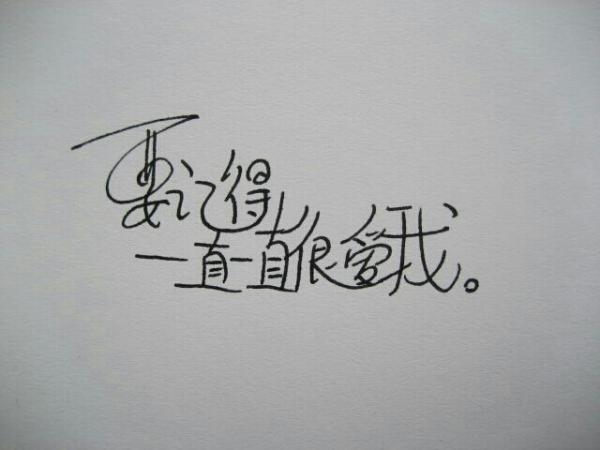 要记得
一直一直很爱我。